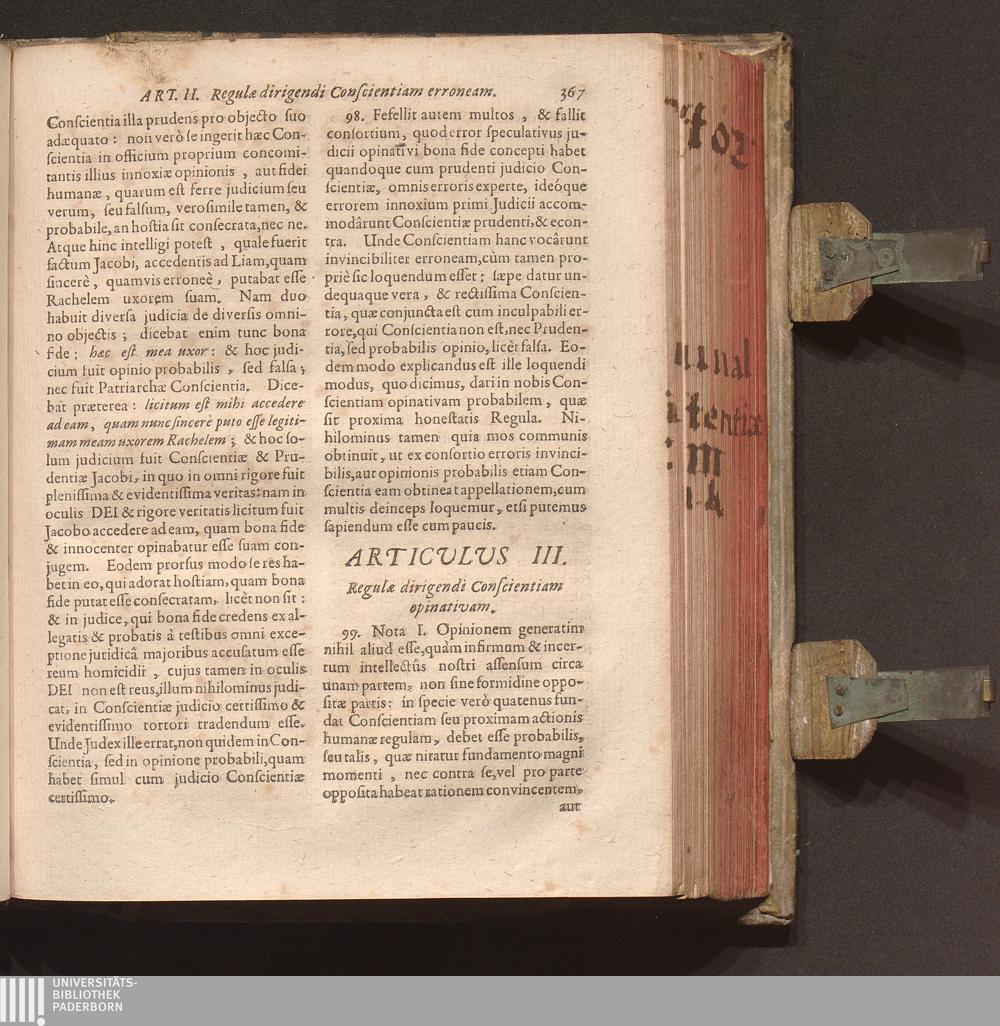 ART. II. Regulæ dirigendi Conſcientiam erroneam. 367
Conſcientia illa prudens pro objecto ſuo
adæquato : non verò ſe ingerit hæc Con-
ſcientia in officium proprium concomi-
tantis illius innoxiæ opinionis , aut fidei
humanæ , quarum eſt ferre judicium ſeu
verum, ſeu falſum, veroſimile tamen, &
probabile, an hoſtia ſit conſecrata, nec ne.
Atque hinc intelligi poteſt , quale fuerit
factum Jacobi, accedentis ad Liam, quam
ſincerè , quamvis erroneè , putabat eſſe
Rachelem uxorem ſuam. Nam duo
habuit diverſa judicia de diverſis omni-
no objectis ; dicebat enim tunc bona
fide : hæc eſt mea uxor : & hoc judi-
cium fuit opinio probabilis , ſed falſa ;
nec fuit Patriarchæ Conſcientia. Dice-
bat præterea : licitum eſt mihi accedere
ad eam, quam nunc ſincerè puto eſſe legiti-
mam meam uxorem Rachelem ; & hoc ſo-
lum judicium fuit Conſcientiæ & Pru-
dentiæ Jacobi, in quo in omni rigore fuit
pleniſſima & evidentiſſima veritas: nam in
oculis DEI & rigore veritatis licitum fuit
Jacobo accedere ad eam, quam bona fide
& innocenter opinabatur eſſe ſuam con-
jugem. Eodem prorſus modo ſe res ha-
bet in eo, qui adorat hoſtiam, quam bona
fide putat eſſe conſecratam, licèt non ſit :
& in judice, qui bona fide credens ex al-
legatis & probatis à teſtibus omni exce-
ptione juridicâ majoribus accuſatum eſſe
reum homicidii , cujus tamen in oculis
DEI non eſt reus, illum nihilominus judi-
cat, in Conſcientiæ judicio certiſſimo &
evidentiſſimo tortori tradendum eſſe.
Unde Judex ille errat, non quidem in Con-
ſcientia, ſed in opinione probabili, quam
habet ſimul cum judicio Conſcientiæ
certiſſimo.
98. Fefellit autem multos , & fallit
conſortium, quod error ſpeculativus ju-
dicii opinativi bona fide concepti habet
quandoque cum prudenti judicio Con-
ſcientiæ, omnis erroris experte, ideóque
errorem innoxium primi Judicii accom-
modârunt Conſcientiæ prudenti, & econ-
tra. Unde Conſcientiam hanc vocârunt
invincibiliter erroneam, cùm tamen pro-
priè ſic loquendum eſſet : ſæpe datur un-
dequaque vera , & rectiſſima Conſcien-
tia, quæ conjuncta eſt cum inculpabili er-
rore, qui Conſcientia non eſt, nec Pruden-
tia, ſed probabilis opinio, licèt falſa. Eo-
dem modo explicandus eſt ille loquendi
modus, quo dicimus, dari in nobis Con-
ſcientiam opinativam probabilem , quæ
ſit proxima honeſtatis Regula. Ni-
hilominus tamen quia mos communis
obtinuit, ut ex conſortio erroris invinci-
bilis, aut opinionis probabilis etiam Con-
ſcientia eam obtineat appellationem, cum
multis deinceps loquemur, etſi putemus
ſapiendum eſſe cum paucis.
ARTICVLVS III.
Regulæ dirigendi Conſcientiam
opinativam.
99. Nota I. Opinionem generatim
nihil aliud eſſe, quàm infirmum & incer-
tum intellectûs noſtri aſſenſum circa
unam partem, non ſine formidine oppo-
ſitæ partis : in ſpecie verò quatenus fun-
dat Conſcientiam ſeu proximam actionis
humanæ regulam, debet eſſe probabilis,
ſeu talis , quæ nitatur fundamento magni
momenti , nec contra ſe, vel pro parte
oppoſita habeat rationem convincentem,
aut
UNIVERSITÄTS-
BIBLIOTHEK
PADERBORN